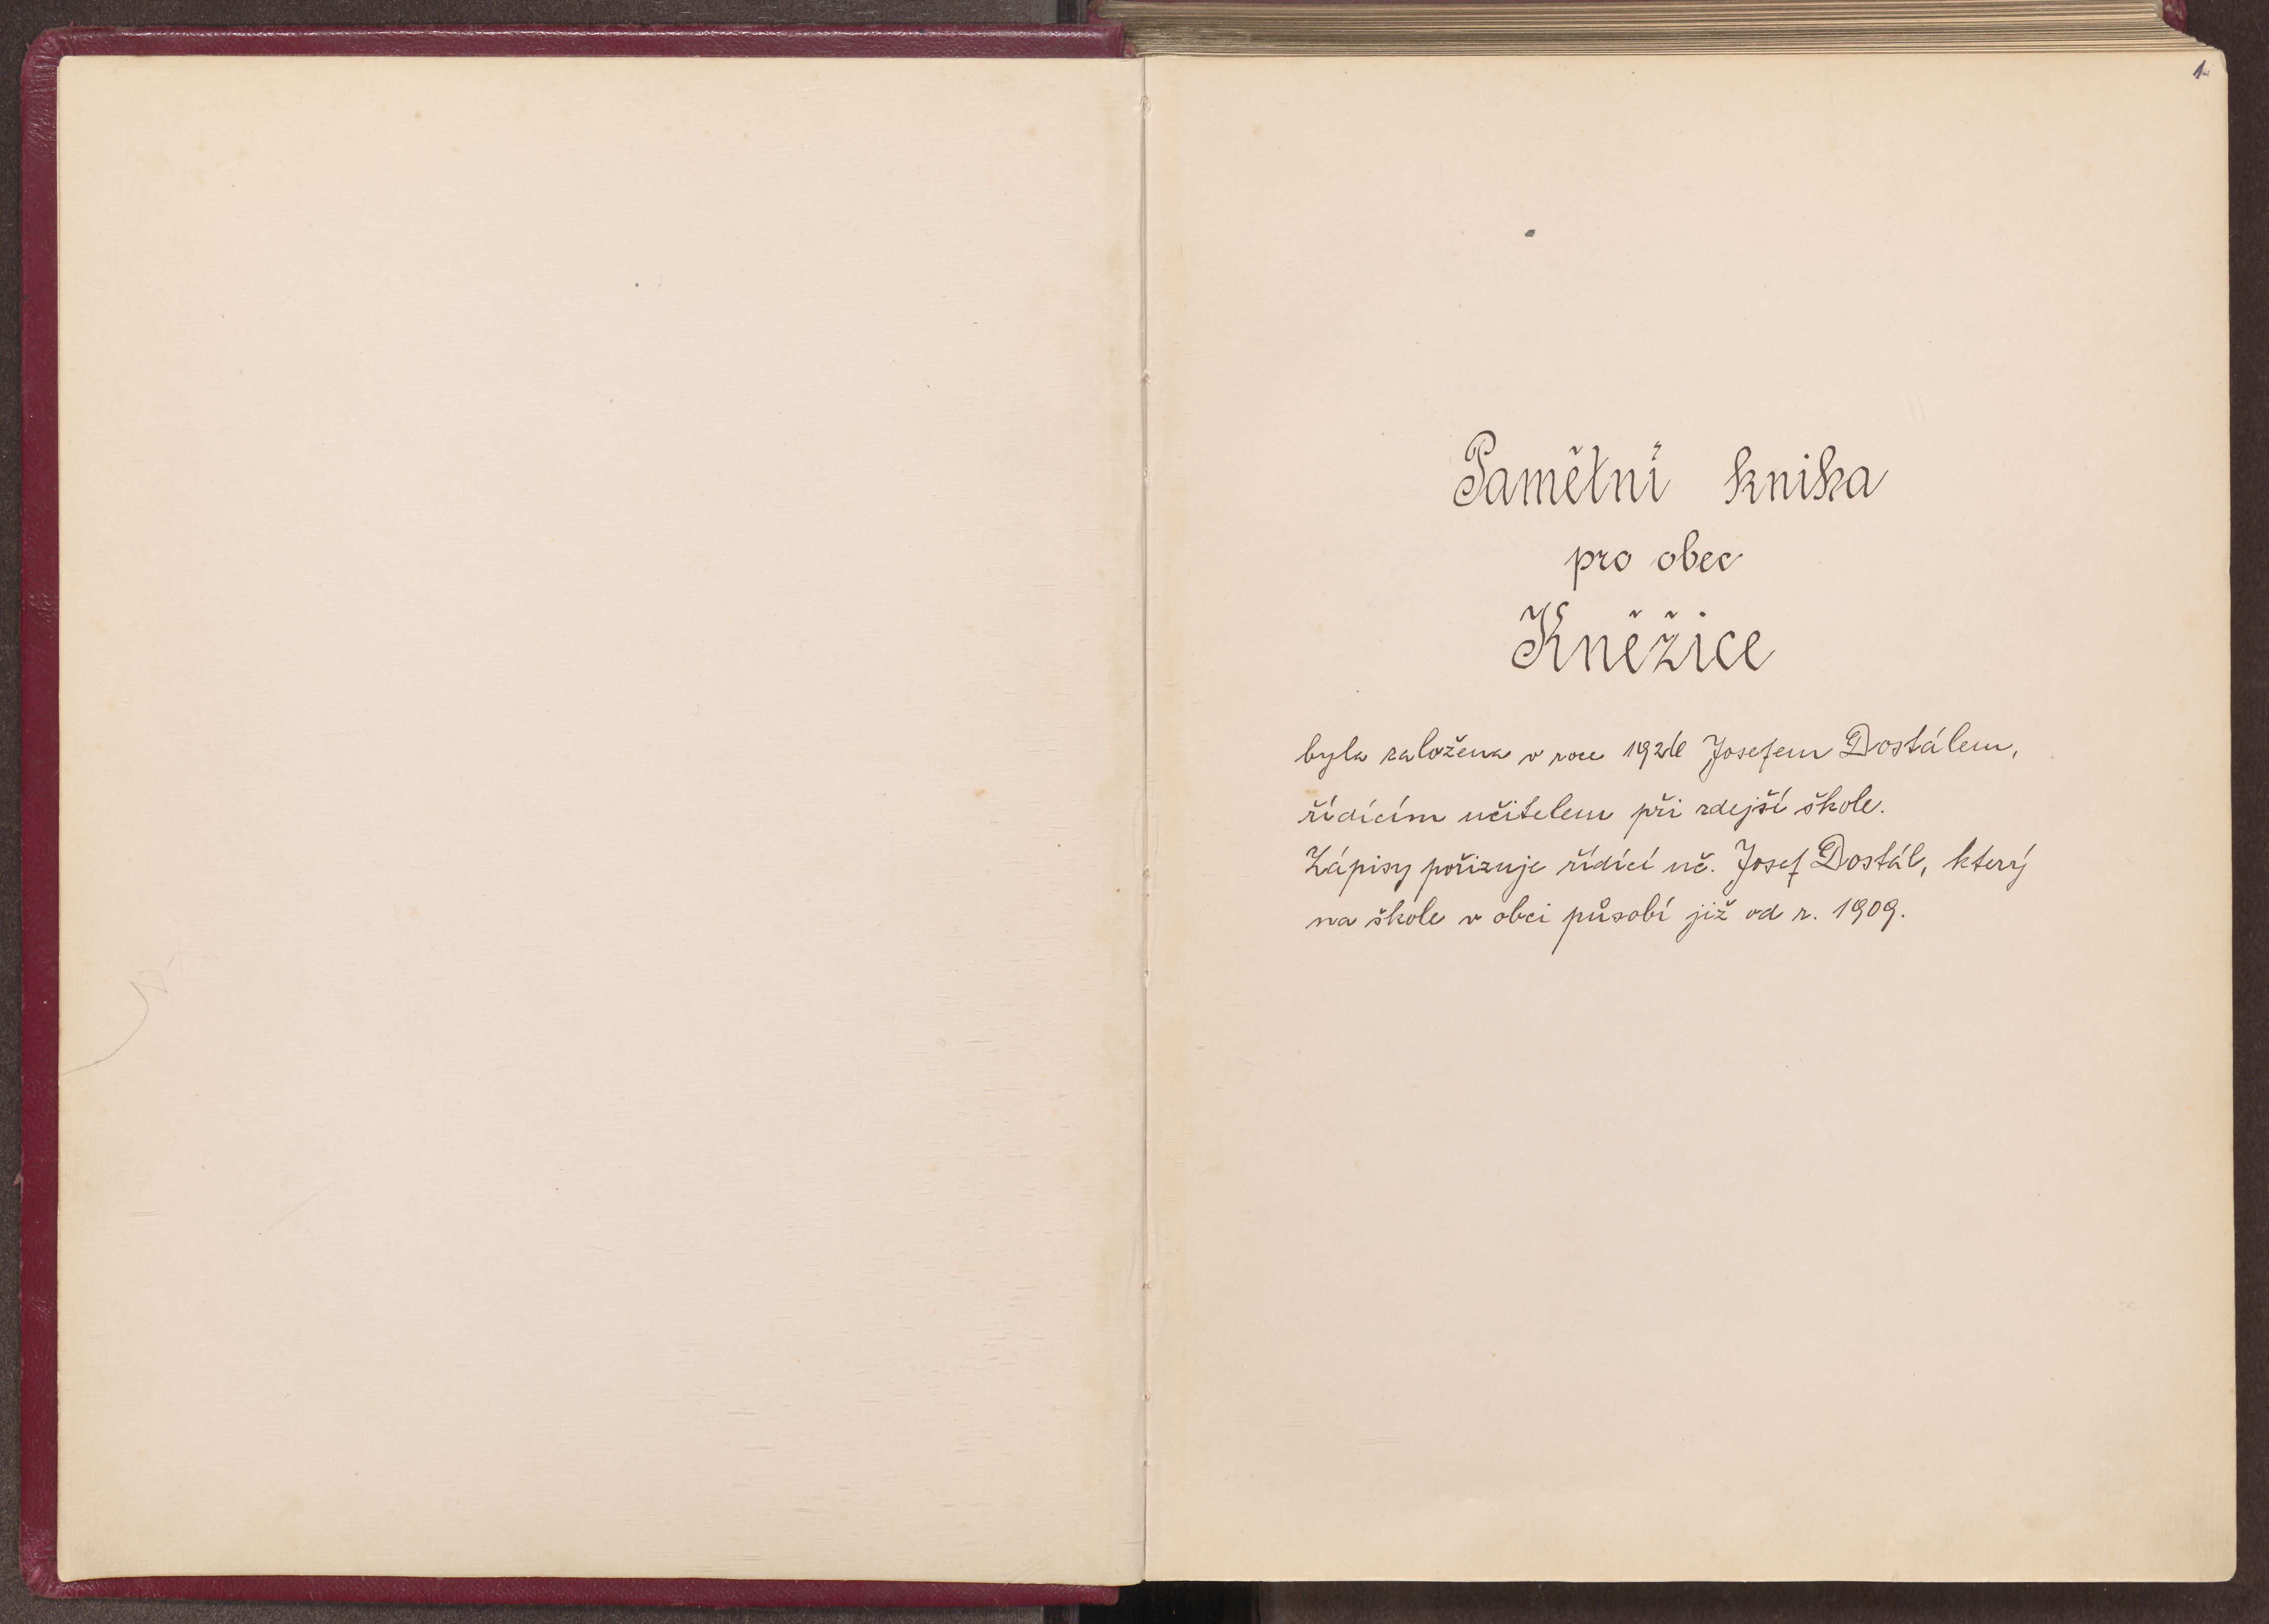 1.
Pamětní kniha
pro obec
Kněžice
byla založena v roce Josefem Dostálem,
řídícím učitelem při zdejší škole.
Zápisy pořizuje řídící uč. Josef Dostál, který
na škole v obci působí již od r. 1909.